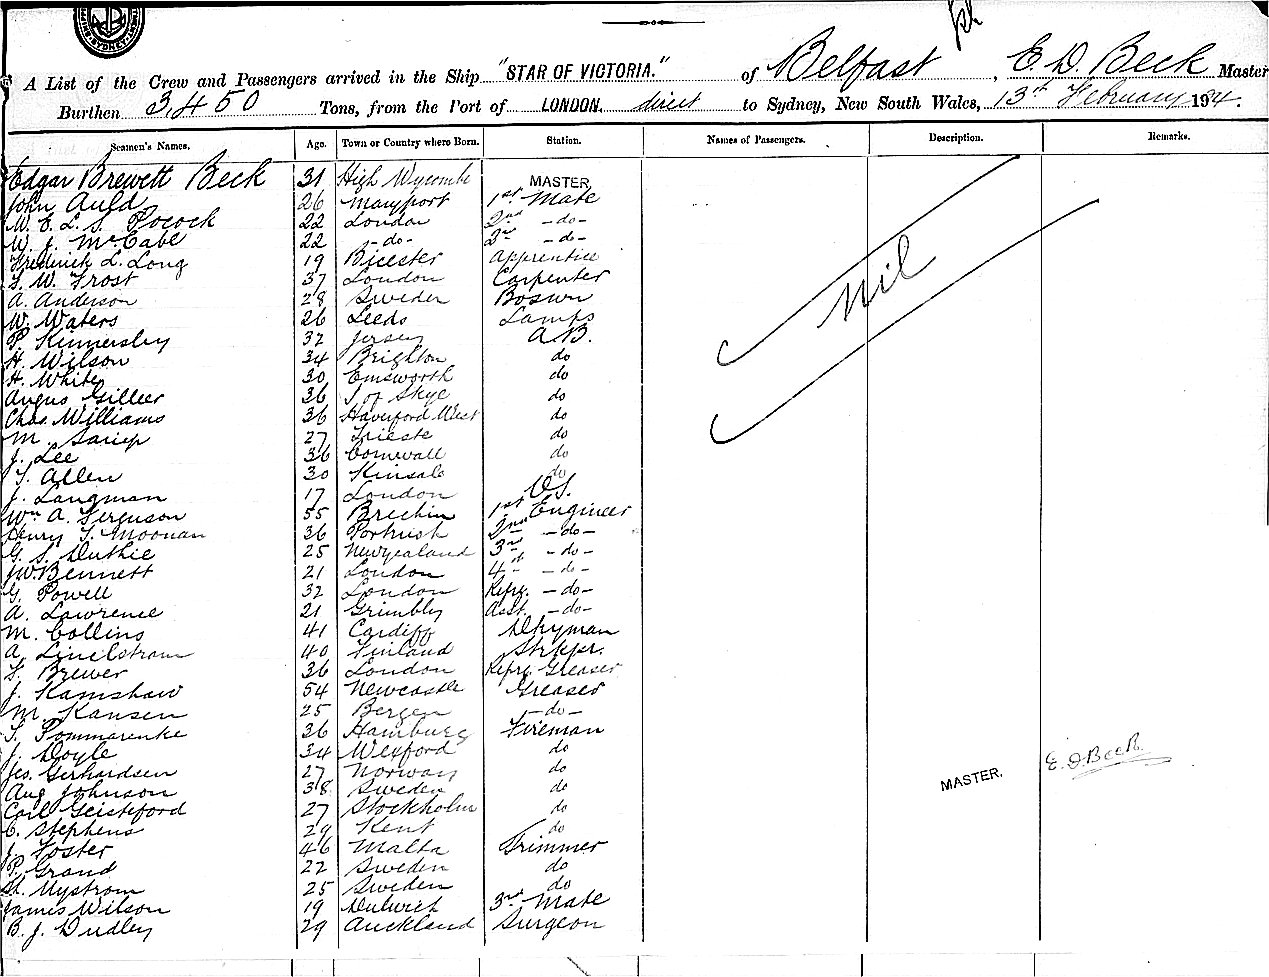 A List of the Crew and Passengers arrived in the Ship "STAR OF VICTORIA." of Belfast, E. D. Beck Master
Burthen 3,450 Tons, from the Port of LONDON. direct to Sydney, New South Wales, 13th February 194.
Seamen's Names. Age. Town or Country where Born. Station. Names of Passengers. Description. Remarks.
Edgar Brewett Beck 31 High Wycombe MASTER
John Auld 26 Maryport 1st Mate
W. E. L. S. Pocock 22 London 2nd -do-
W. J. McCabe 22 -do- -do-
Frederick L. Long 19 Bicester Apprentice
W. Frost 37 London Carpenter
A. Anderson 28 Sweden Bosun
W. Waters 26 Leeds Lamps
P. Kinnersley 32 Jersey A.B.
H. Wilson 34 Brighton do
H. White 30 Emsworth do
Angus Gillier 36 I of Skye do
Chas. Williams 36 Haverford West do
M. 27 Trieste do
J. Lee 36 Cornwall do
Allen 30 Kinsale do
J. Langman 17 London O.S.
Wm A. Ferguson 55 Brechin 1st Engineer
Henry Moonan 36 Portrush 2nd -do-
G. S. Duthie 25 New Zealand 3rd -do-
J.W. Bennett 21 London 4th -do-
G. Powell 32 London Refrg. -do-
A. Lawrence 21 Grimbly Asst. -do-
M. Collins 41 Cardiff Dkyman
A. Lindstrom 40 Finland Strkpr.
Brewer 36 London Refrg. Greaser
J. Ramshaw 54 Newcastle Greaser
M. Hansen 25 Bergen -do-
Pommarenke 36 Hamburg Fireman
J. Doyle 34 Wexford do
Jos. Gerhardsen 27 Norway do
Aug Johnson 38 Sweden do
Carl Geisteford 27 Stockholm do
C. Stephens 29 Kent do
J. Foster 46 Malta Trimmer
P. Grand 22 Sweden do
Nystrom 25 Sweden do
James Wilson 19 Dulwich 3rd Mate
B. J. Dudley 29 Auckland Surgeon
Nil
MASTER. E. D Beck